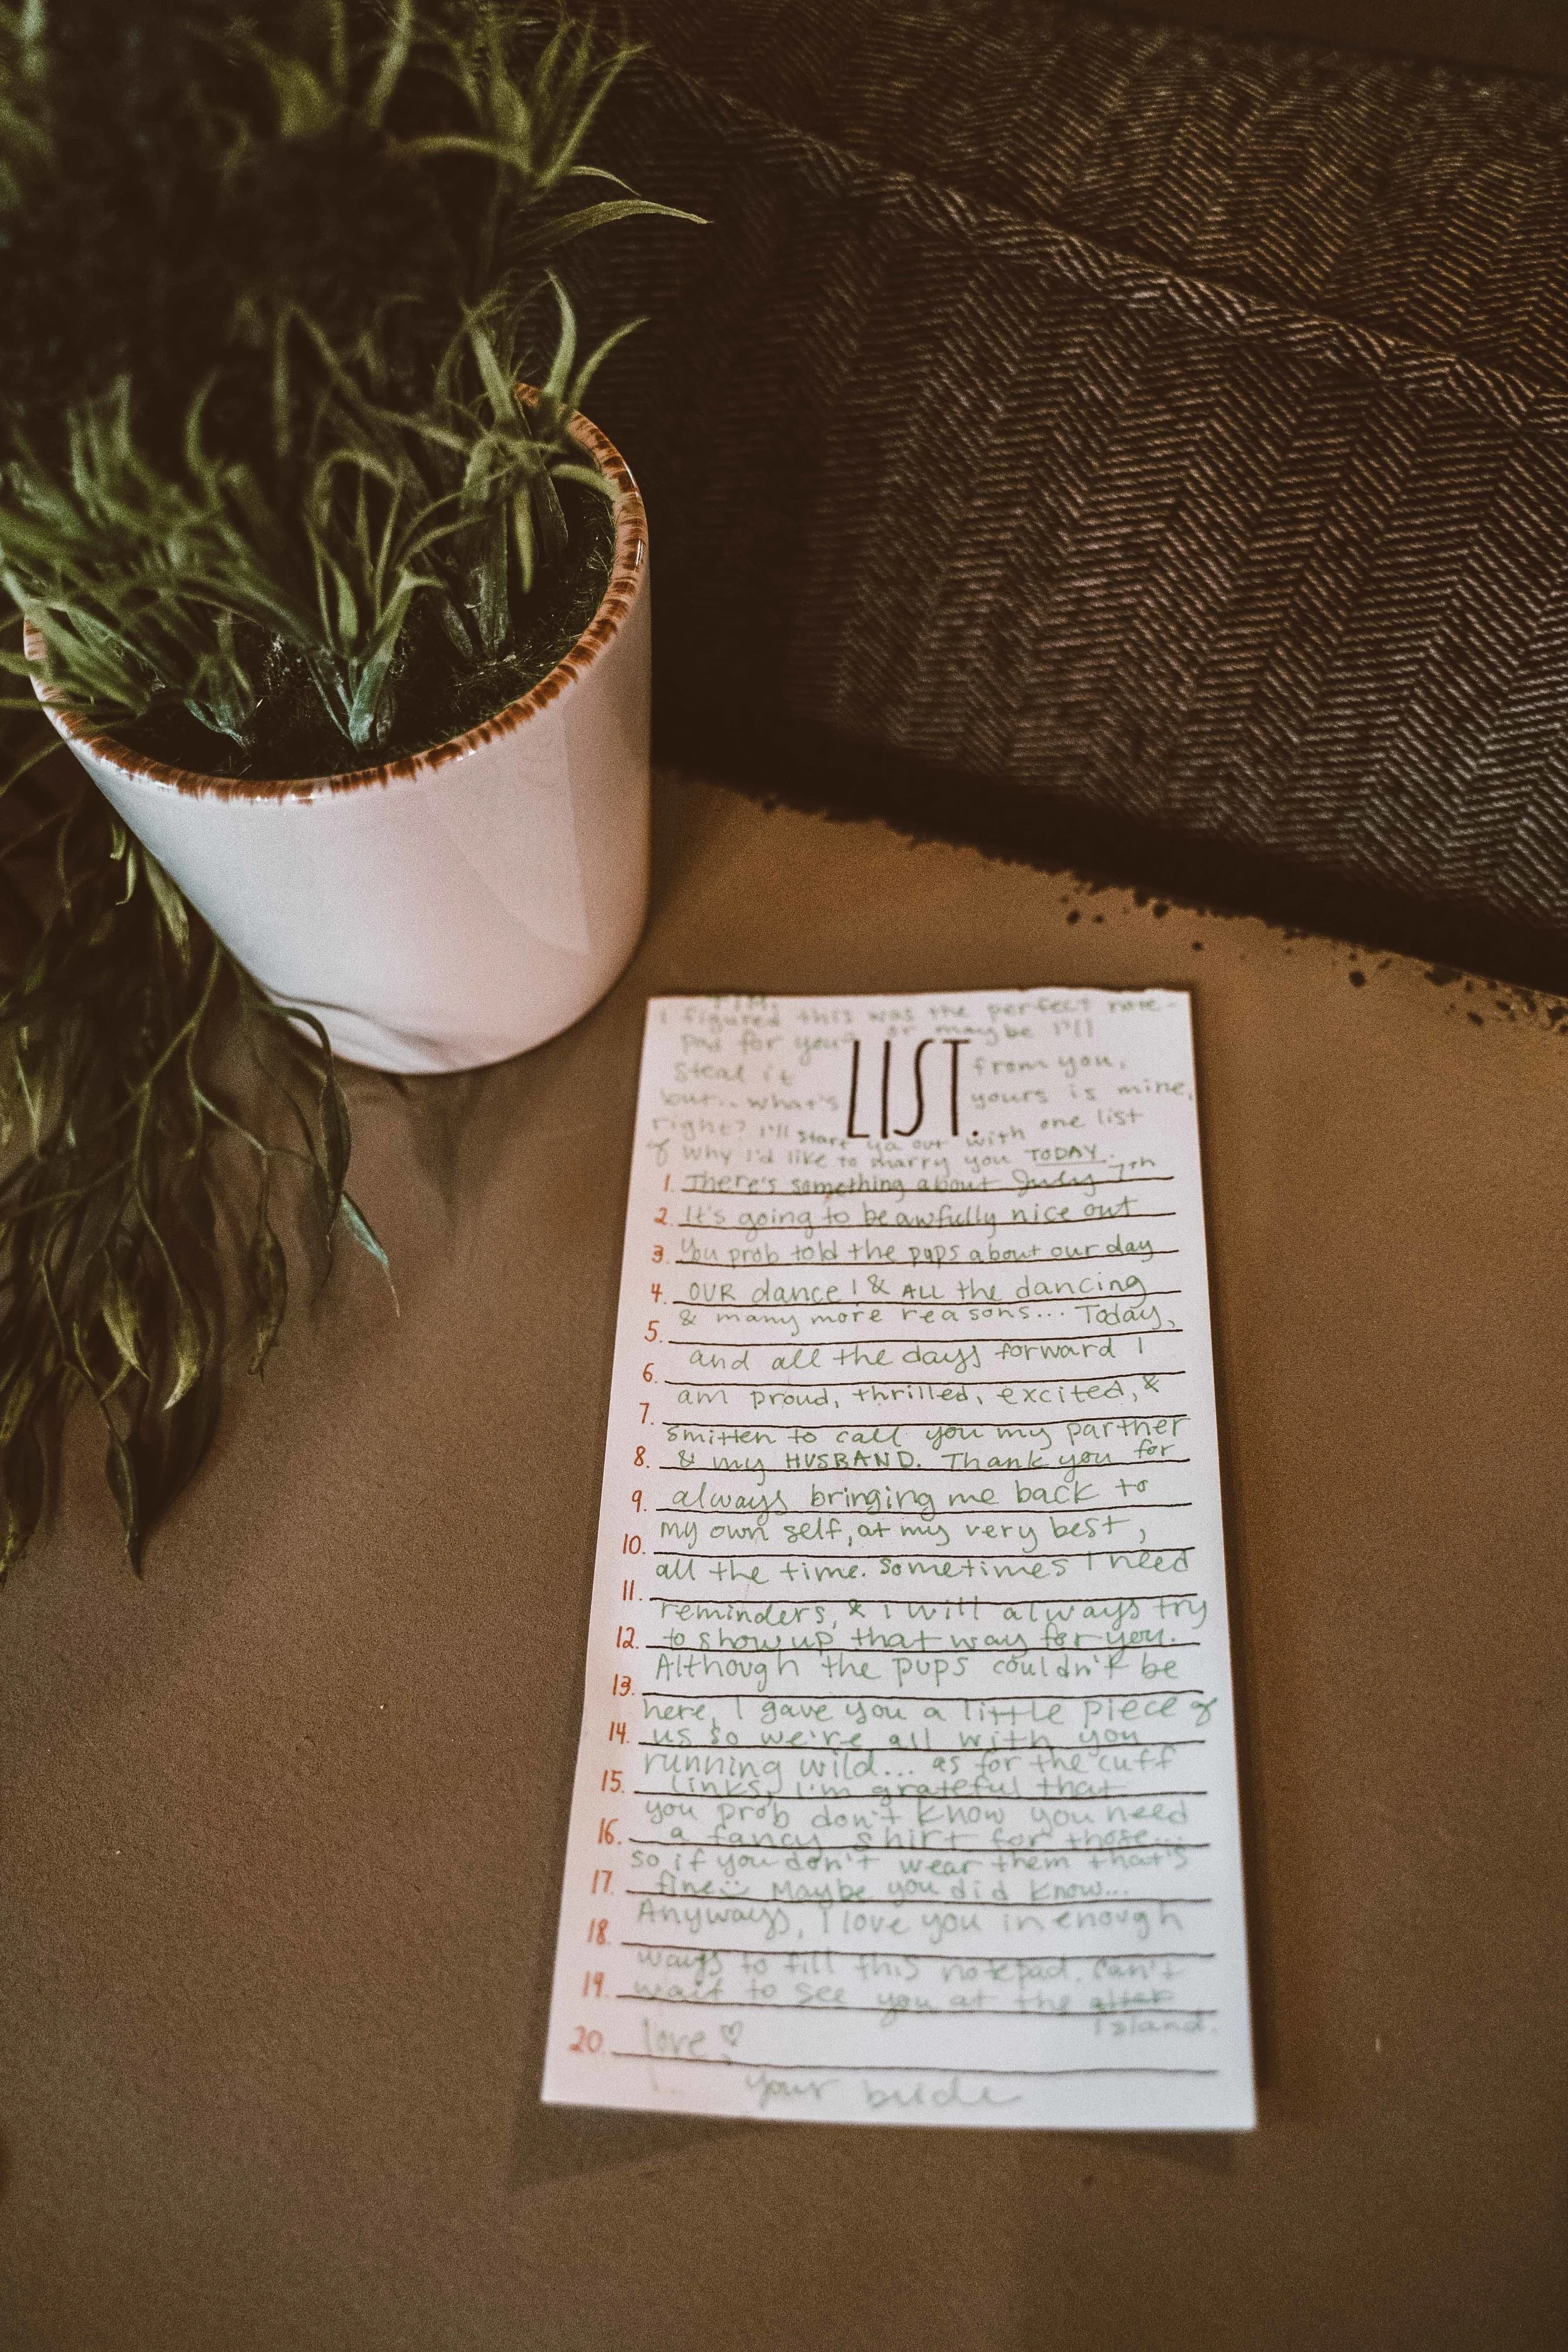 TIM,
I figured this was the perfect note-
pad for you? or maybe I'll
steal it from you,
LIST.
but... what's yours is mine,
right? I'll start ya out with one list
of why I'd like to marry you TODAY.
1. There's something about July 7th
2. It's going to be awfully nice out
3. You prob told the pups about our day
4. OUR dance! & ALL the dancing
& many more reasons... Today,
5.
and all the days forward I
6.
am proud, thrilled, excited, &
7.
smitten to call you my partner
8. & my HUSBAND. Thank you for
9. always bringing me back to
10. my own self, at my very best,
all the time. Sometimes I need
11.
reminders, & I will always try
12. to show up that way for you.
Although the pups couldn't be
13.
here, I gave you a little piece of
14. us so we're all with you
running wild... as for the cuff
15. links, I'm grateful that
you prob don't know you need
16. a fancy shirt for those...
so if you don't wear them that's
17. fine Maybe you did know...
Anyways, I love you in enough
18.
ways to fill this notepad. Can't
19. wait to see you at the alter
island.
20. love ♡
your bride